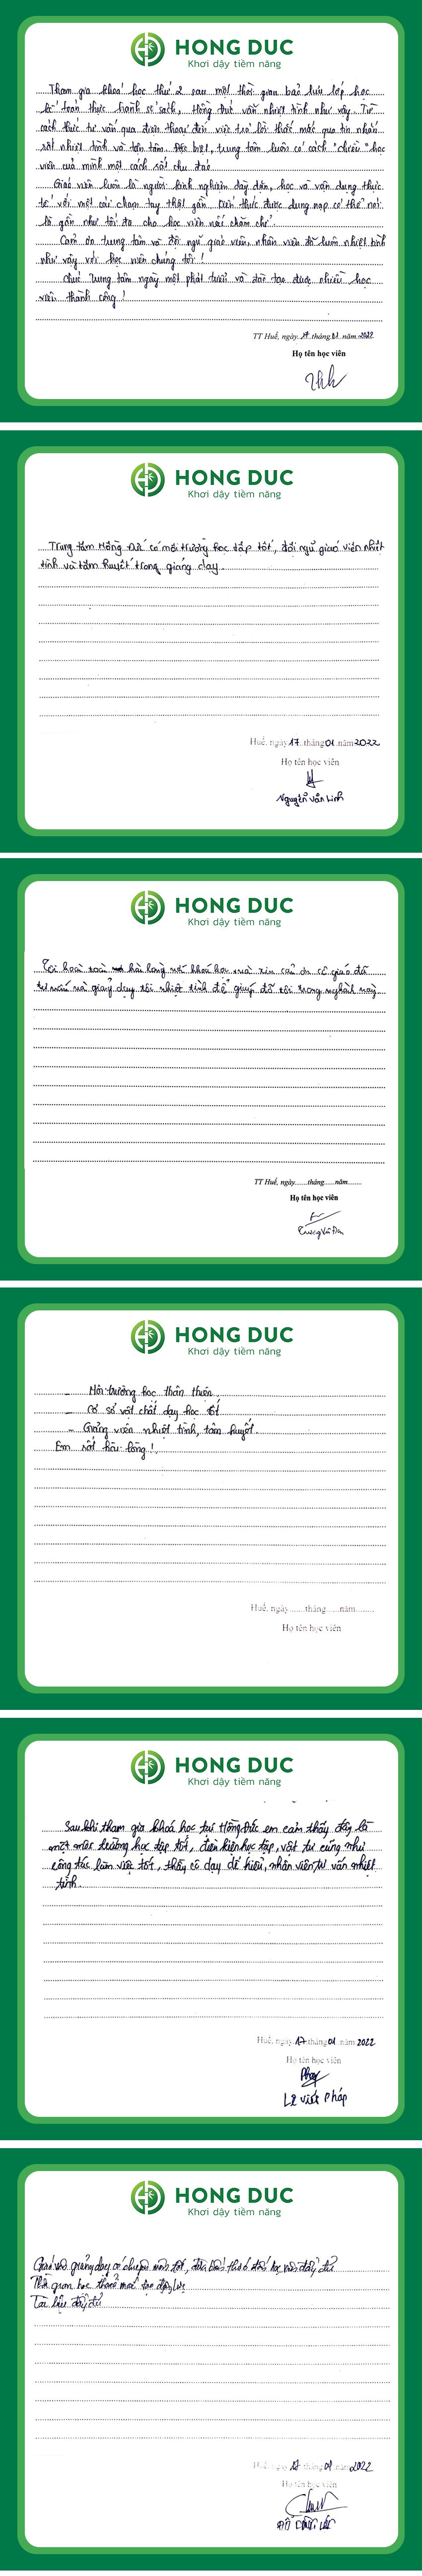 HONG DUC
Khơi dậy tiềm năng
Tham gia khoá học thứ 2 sau một thời gian bảo lưu lớp học
kế toán thực hành sổ sách, thông tư vẫn nhiệt tình như vậy. Từ
cách thức tư vấn qua điện thoại đến việc trả lời thắc mắc qua tin nhắn
rất nhiệt tình và tận tâm. Đặc biệt, trung tâm luôn có cách "chiều" học
viên của mình một cách rất chu đáo
Giáo viên luôn là người kinh nghiệm dày dặn, học và vận dụng thực
tế với một cái chạm tay thật gần. Kiến thức được dung nạp có thể nói
là gần như tối đa cho học viên nào chăm chỉ.
Cảm ơn trung tâm và đội ngũ giáo viên, nhân viên đã luôn nhiệt tình
như vậy với học viên chúng tôi !
Chúc trung tâm ngày một phát triển và đào tạo được nhiều học
viên thành công !
TT Huế, ngày 17 tháng 01 năm 2022
Họ tên học viên
HONG DUC
Khơi dậy tiềm năng
Trung tâm Hồng Đức có môi trường học tập tốt, đội ngũ giáo viên nhiệt
tình và tâm huyết trong giảng dạy.
Huế, ngày 17 tháng 01 năm 2022
Họ tên học viên
Nguyễn Văn Linh
HONG DUC
Khơi dậy tiềm năng
Tôi hoàn toàn hài lòng với khoá học và xin cảm ơn cô giáo đã
tư vấn và giảng dạy tôi nhiệt tình để giúp đỡ tôi trong nghành này.
TT Huế, ngày......tháng......năm........
Họ tên học viên
HONG DUC
Khơi dậy tiềm năng
- Môi trường học thân thiện,
- Cơ sở vật chất dạy học tốt
- Giảng viên nhiệt tình, tâm huyết.
Em rất hài lòng !.
Huế, ngày.......tháng......năm.........
Họ tên học viên
HONG DUC
Khơi dậy tiềm năng
Sau khi tham gia khoá học tại Hồng Đức em cảm thấy đây là
một môi trường học tập tốt, điều kiện học tập, vật tư cũng như
công tác làm việc tốt, thầy cô dạy dễ hiểu, nhân viên tư vấn nhiệt
tình.
Huế, ngày 17 tháng 01 năm 2022
Họ tên học viên
Lê Viết Pháp
HONG DUC
Khơi dậy tiềm năng
Giáo viên giảng dạy có chuyên môn tốt, đầy đủ
Thời gian học thoải mái tạo động lực
Tài liệu đầy đủ
Huế, ngày 17 tháng 01 năm 2022
Họ tên học viên